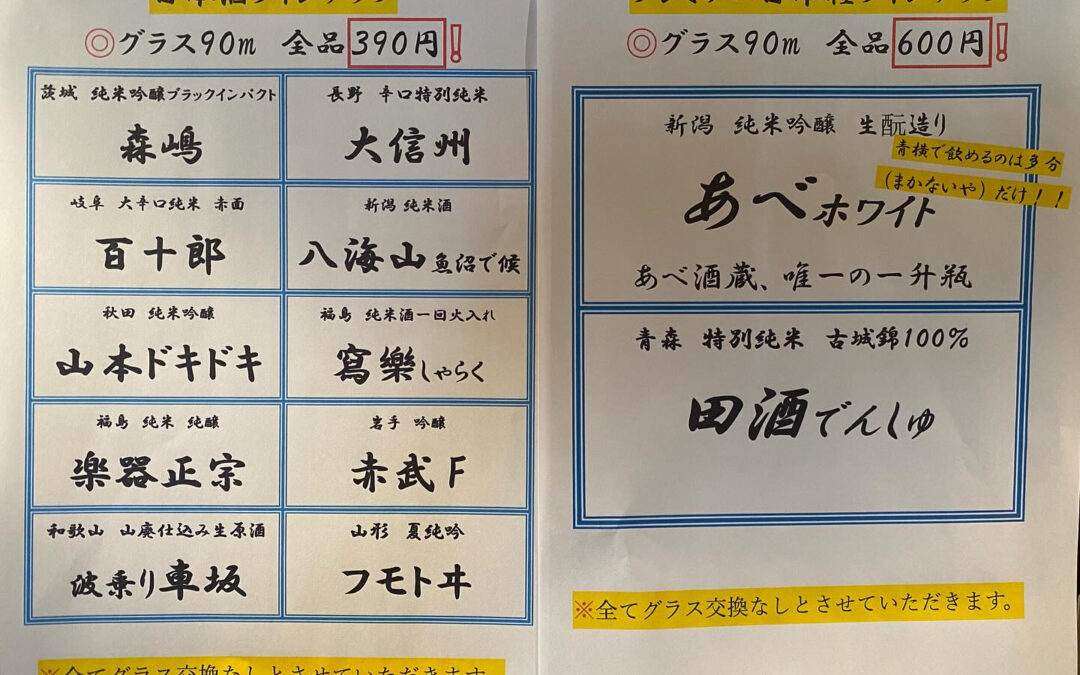 日本酒ラインナップ
◎グラス90m 全品390円!
茨城 純米吟醸ブラックインパクト
森嶋
長野 辛口特別純米
大信州
岐阜 大辛口純米 赤面
百十郎
新潟 純米酒
八海山魚沼で候
秋田 純米吟醸
山本ドキドキ
福島 純米酒一回火入れ
寫樂しゃらく
福島 純米 純醸
楽器正宗
岩手 吟醸
赤武F
和歌山 山廃仕込み生原酒
波乗り車坂
山形 夏純吟
フモトヰ
※全てグラス交換なしとさせていただきます。
◎グラス90m 全品600円!
新潟 純米吟醸 生酛造り
青横で飲めるのは多分
(まかないや)だけ!!
あべホワイト
あべ酒蔵、唯一の一升瓶
青森 特別純米 古城錦100%
田酒でんしゅ
※全てグラス交換なしとさせていただきます。